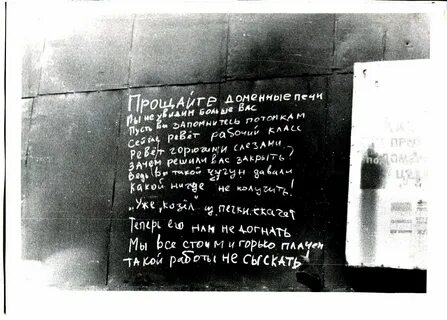 Прощайте доменные печи
Мы не увидим больше вас
Пусть вы запомнитесь потомкам
Сейчас ревёт рабочий класс
Ревёт горючими слезами.
Зачем решили вас закрыть?
Ведь вы такой чугун давали
Какой нигде не получить!
"Уже „козёл" из печки скачет
Теперь его нам не догнать
Мы все стоим и горько плачем
Такой работы не сыскать!